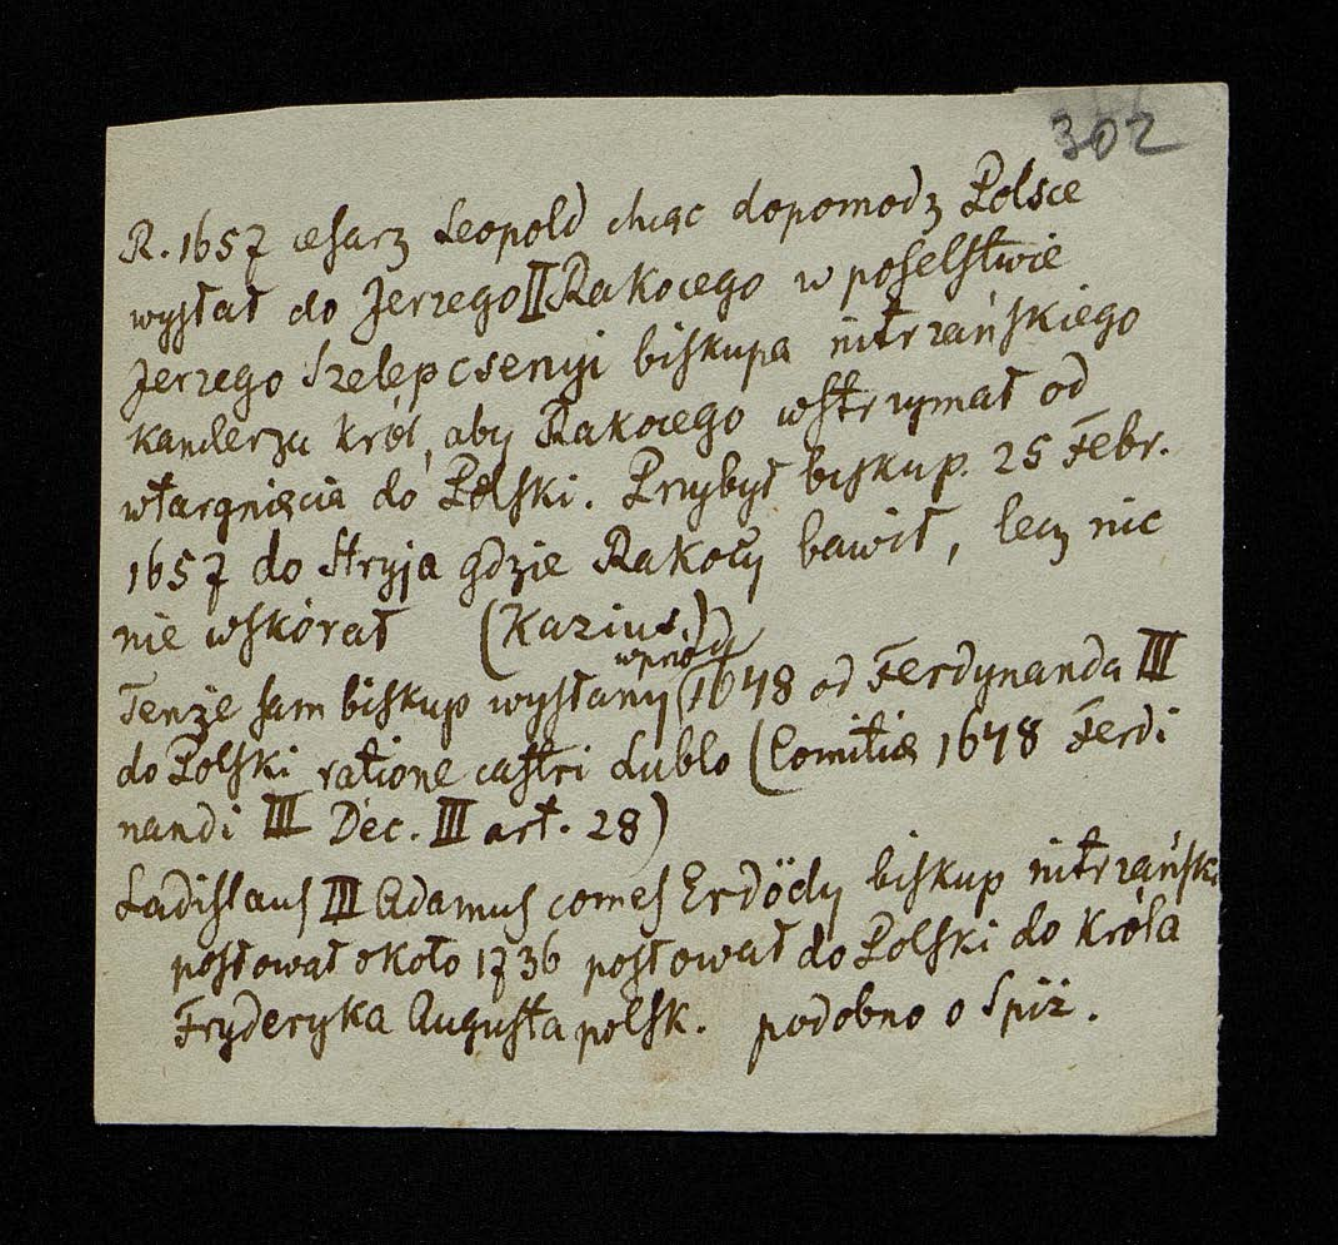 302
R. 1657 cesarz Leopold chcąc dopomodz Polsce
wysłał do Jerzego II Rakocego w poselstwie
Jerzego Szelepcsenyi biskupa nitrzańskiego
kanclerza król, aby Rakocego wstrzymał od
wtargnięcia do Polski. Przybył biskup. 25 Febr.
1657 do Stryja gdzie Rakocy bawił, lecz nic
nie wskórał (Kazius.)
wprzód
Tenże sam biskup wysłany 1648 od Ferdynanda III
do Polski ratione castri Lublo (Comitia 1648 Ferdi
nandi III Dec. III art. 28)
Ladislaus III Adamus comes Erdödy biskup nitrzański
posłował około 1736 posłował do Polski do króla
Fryderyka Augusta polsk. podobno o Spiż.